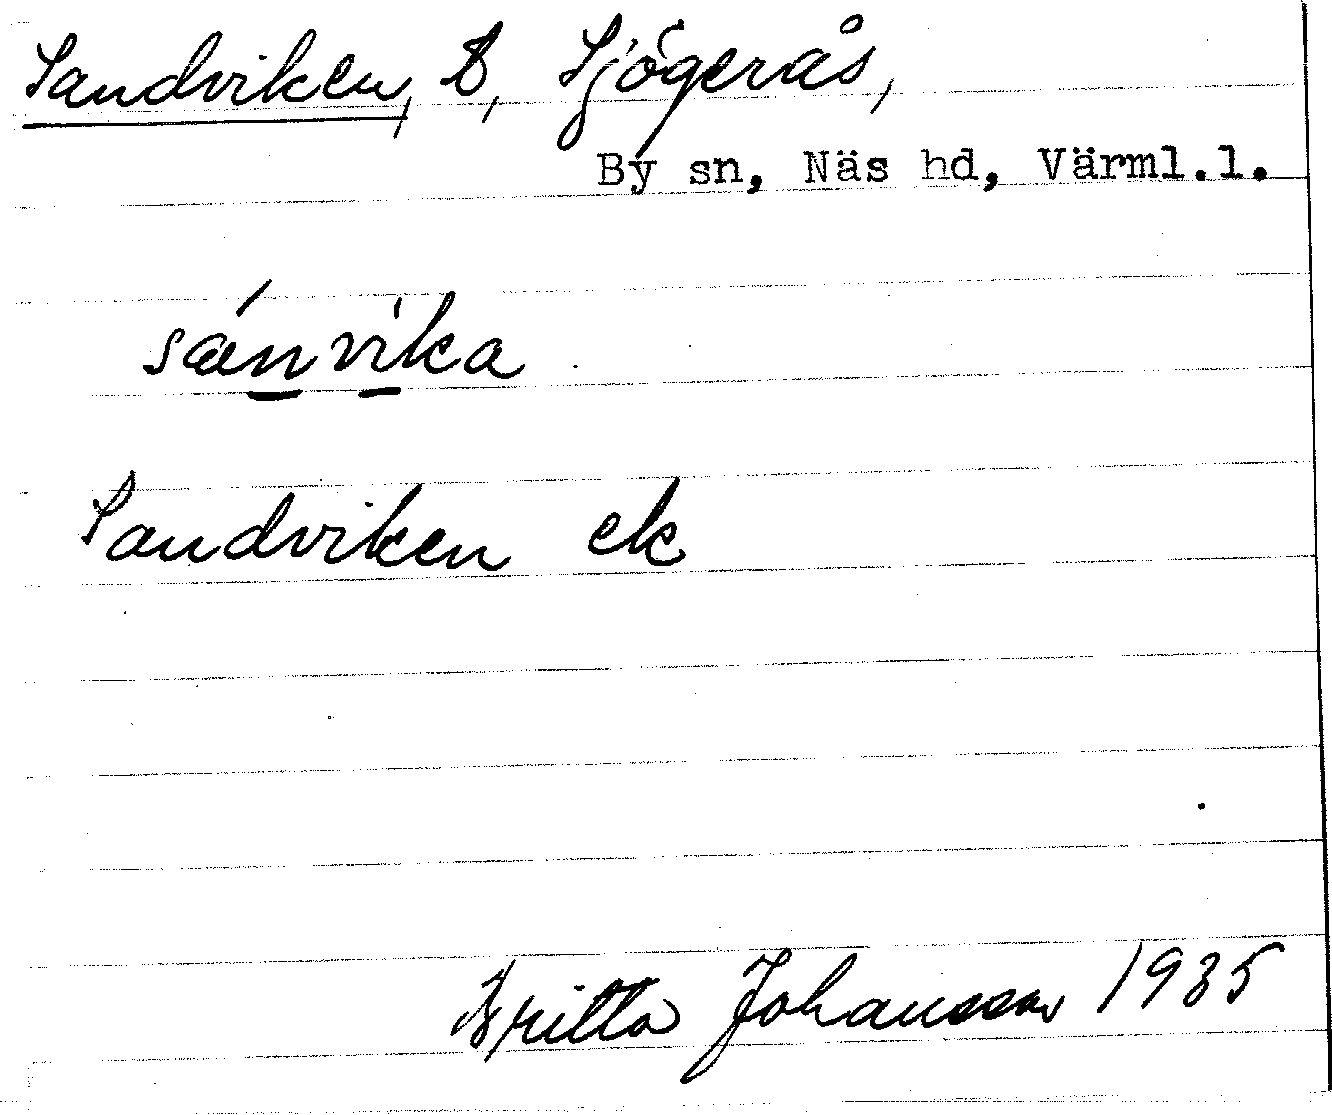 Sandviken, t, Sjögerås,
By sn, Näs hd, Värml.l.
sánvika
Sandviken ek
Britta Johansson 1935